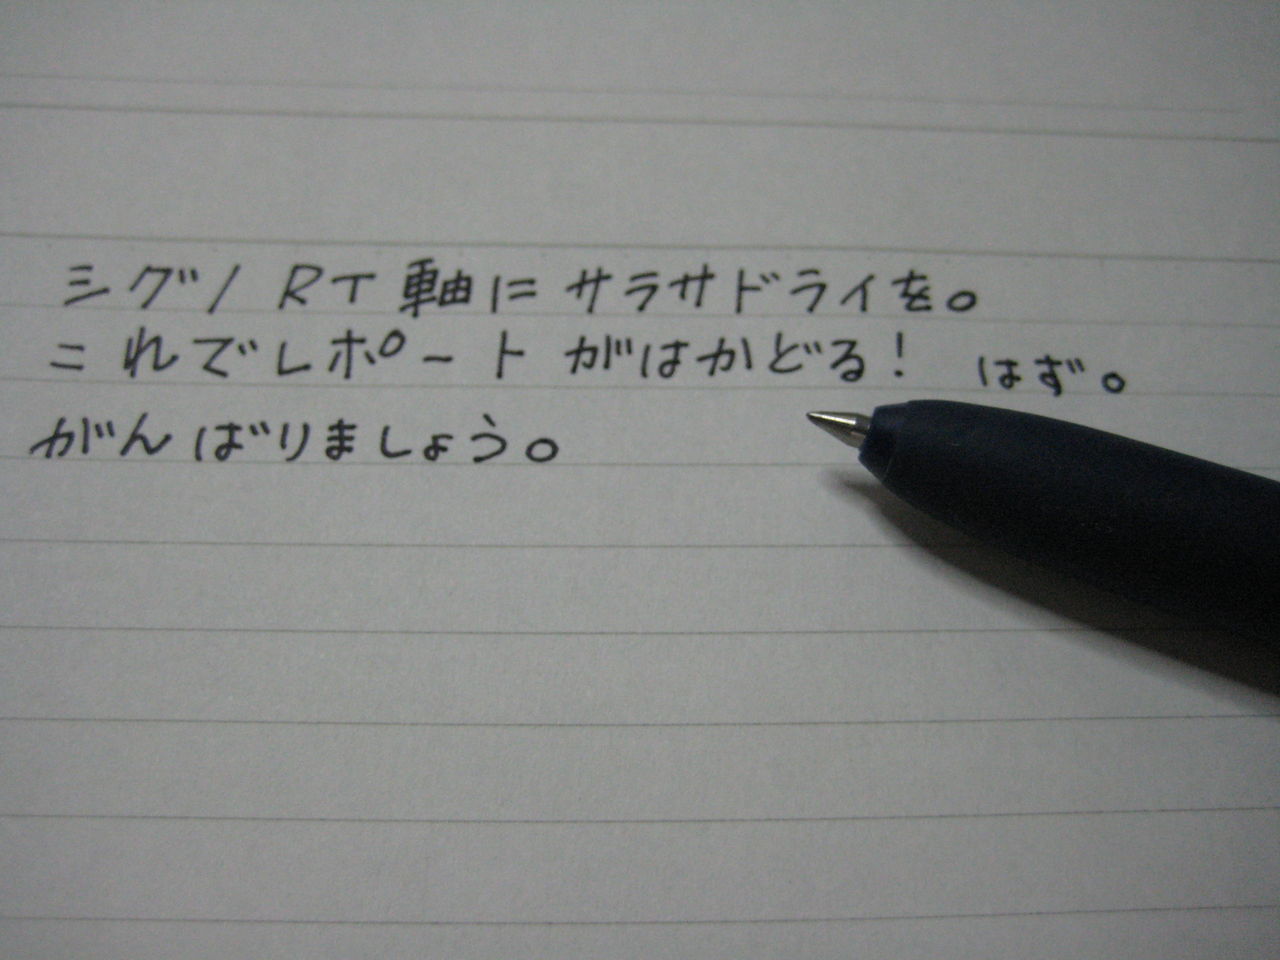 シグノ RT 軸に サラサドライを。
これでレポート がはかどる! はず。
がんばりましょう。